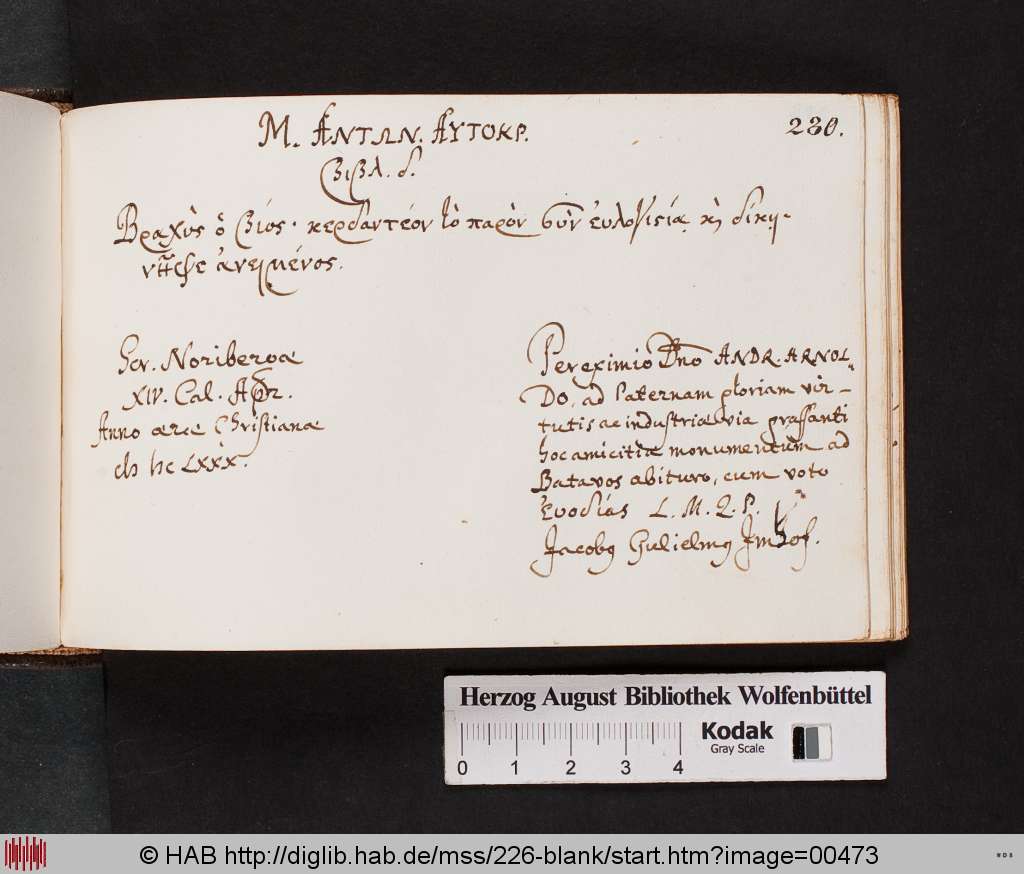 M. ΑΝΤΩΝ. ΑΥΤΟΚΡ.
230.
βιβλ. δ.
Βραχὺς ὁ βίος· κερδαντέον τὸ παρὸν σὺν εὐλογισίᾳ κὴ δίκῃ·
νῆφε ἀνειμένος.
Scr. Noribergæ
XIV. Cal. Apr.
Anno æræ Christianæ
LXXX.
Pereximio Dno ANDR. ARNOL
DO, ad Paternam gloriam vir-
tutis ac industriæ via grassanti
hoc amicitiæ monumentum ad
Batavos abituro, cum voto
εὐοδίας L. M. Q. P.
Jacobg Gulielmg Imhof.
Herzog August Bibliothek Wolfenbüttel
Kodak
Gray Scale
0 1 2 3 4
© HAB http://diglib.hab.de/mss/226-blank/start.htm?image=00473